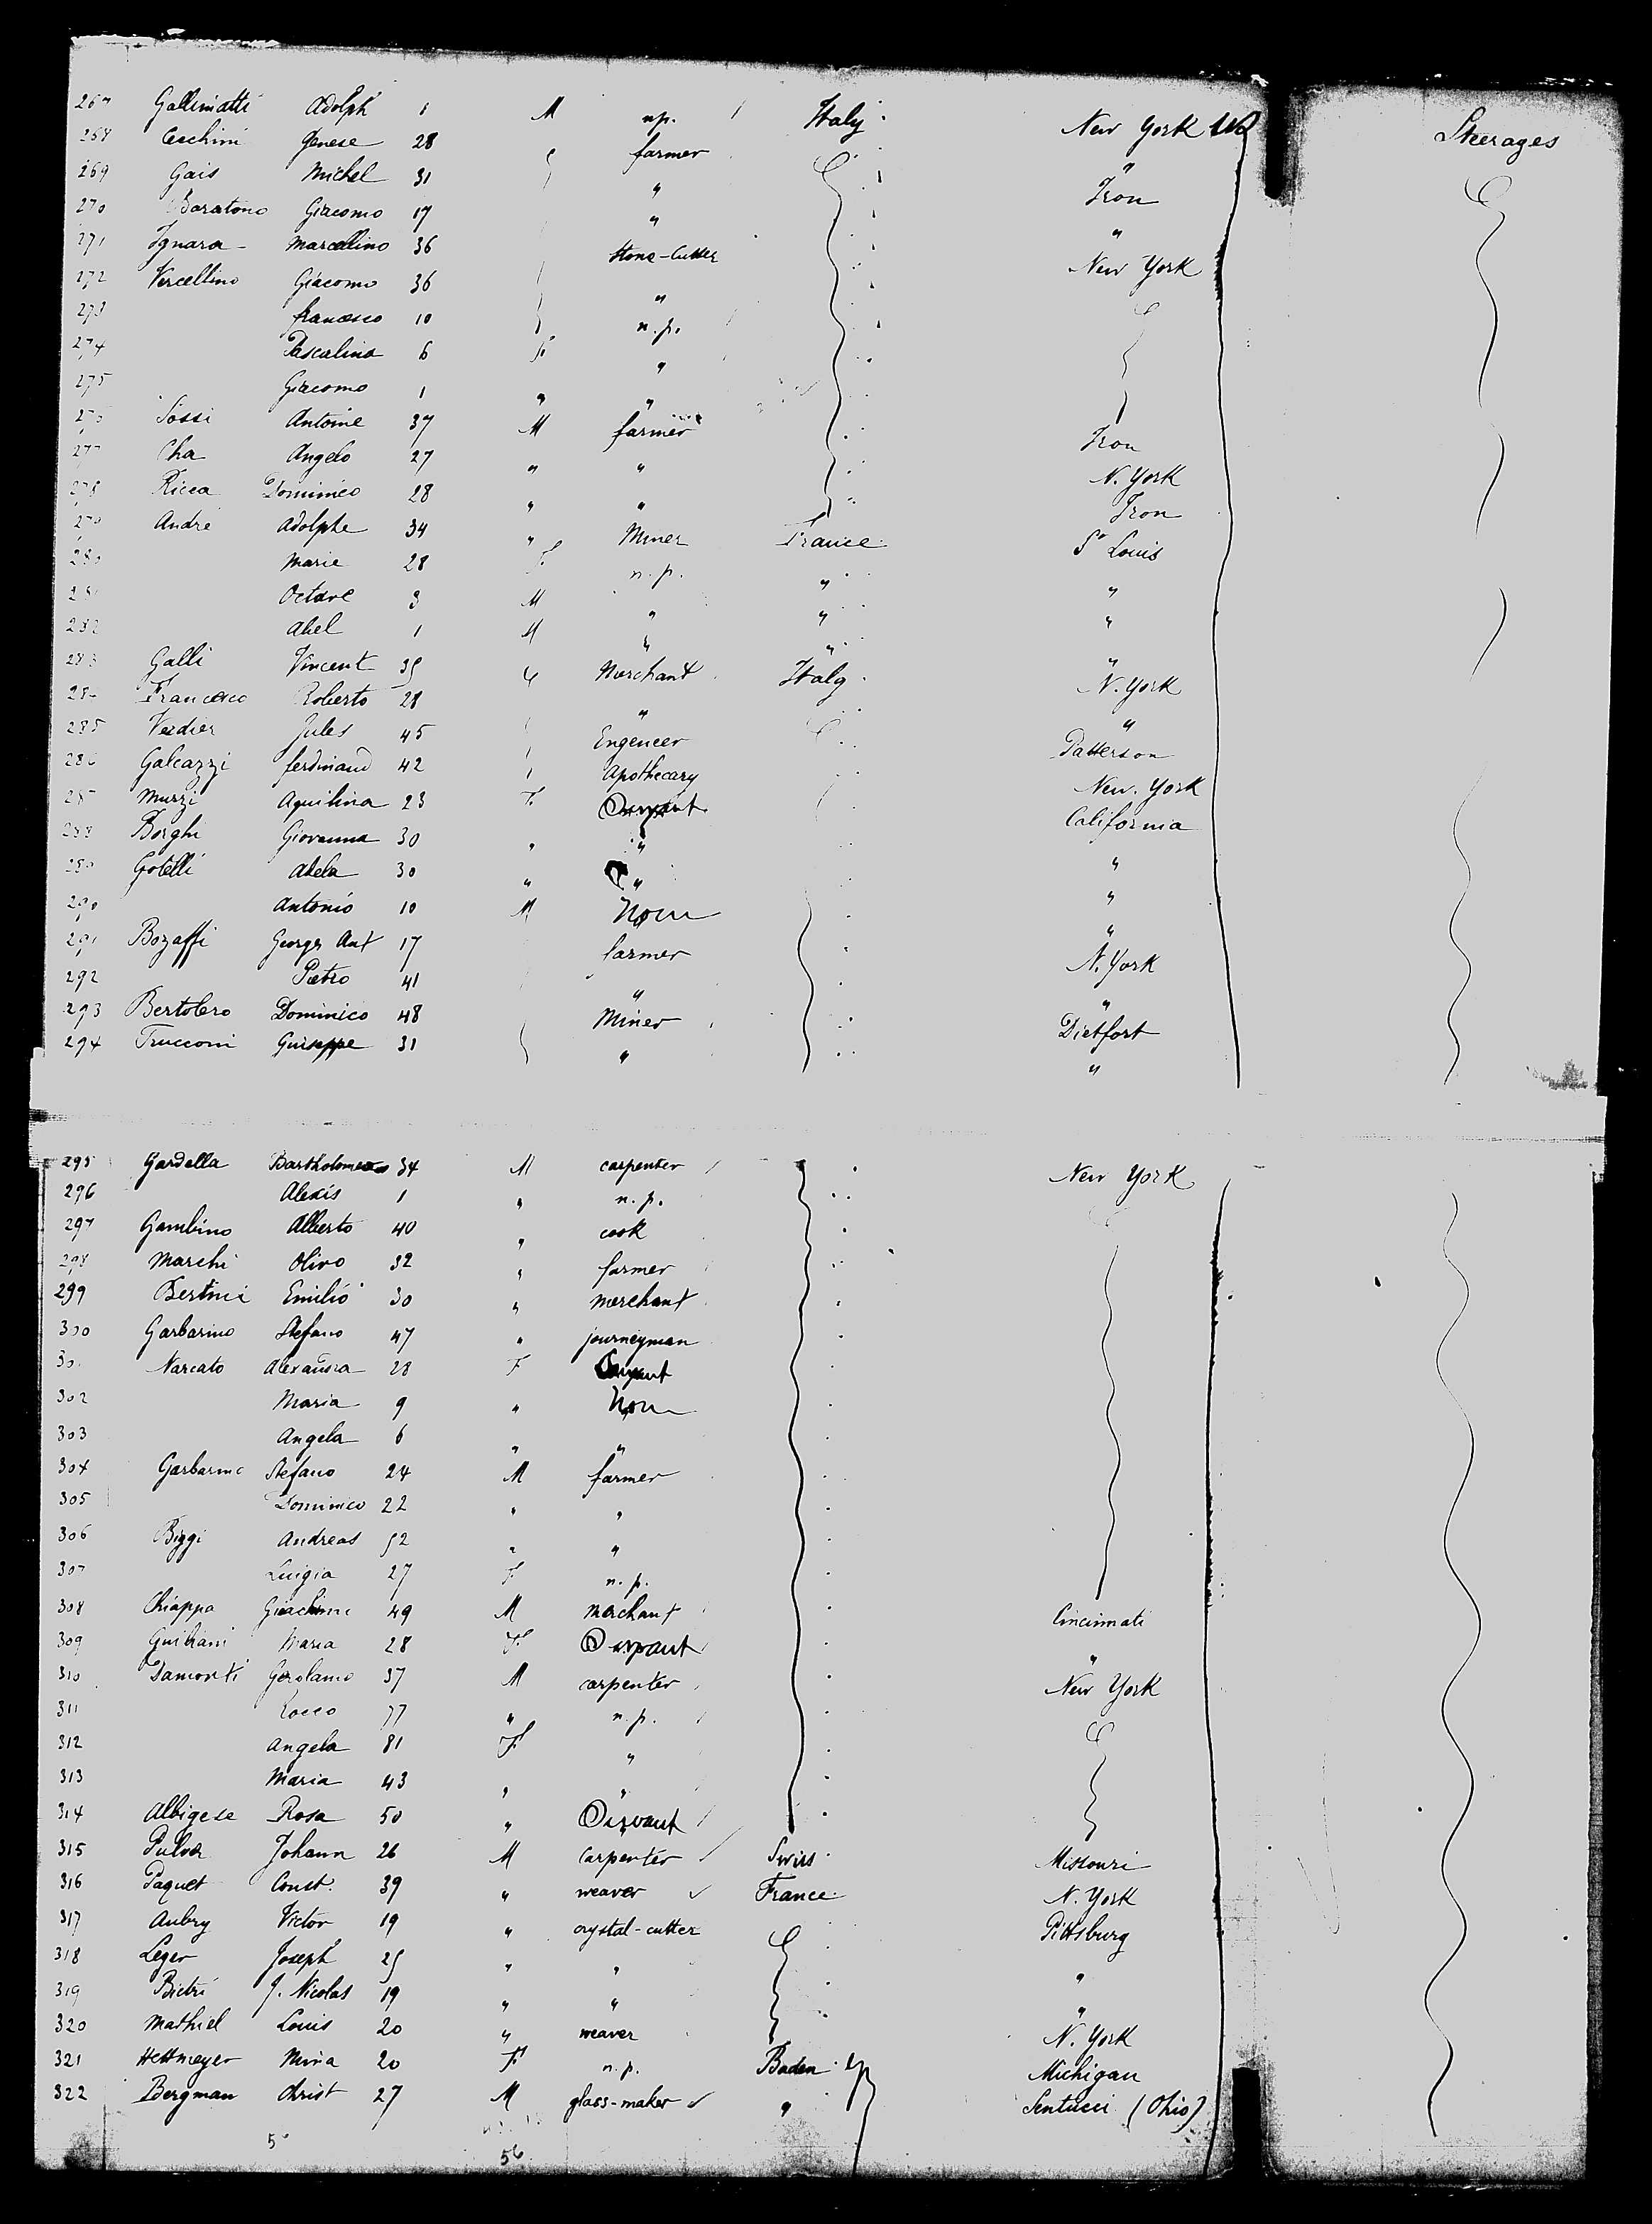 267 Gallimatti Adolph 1 M n.p. Italy New York
Steerages
268 Ceschini Genese 28 farmer "
269 Gais Michel 31 " Iron
270 Baratono Giacomo 17 " "
271 Ignara Marcellino 36 Stone-Cutter New York
272 Vercellino Giacomo 36 "
273 francesco 10 n.p.
274 Pascalina 6 F. "
275 Giacomo 1 " "
276 Sossi Antoine 37 M farmer Iron
277 Cha Angelo 27 " " N. York
278 Ricca Dominico 28 " " Iron
279 André Adolphe 34 " Miner France St Louis
280 Marie 28 F. n.p. " "
281 Octave 3 M " " "
282 Abel 1 M " " "
283 Galli Vincent 35 " Merchant Italy N. York
284 Francesco Roberto 28 " "
285 Verdier Jules 45 Engeneer Patterson
286 Galeazzi ferdinand 42 Apothecary New. York
287 Murzi Aquilina 23 F. Servant California
288 Borghi Giovanna 30 " " "
289 Gotelli Adela 30 " " "
290 Antonio 10 M None "
291 Bozaffi Georges Ant 17 farmer N. York
292 Pietro 41 " "
293 Bertolero Dominico 48 Miner Dietfort
294 Trucconi Guiseppe 31 " "
295 Gardella Bartholomeo 34 M carpenter New York
296 Alexis 1 " n.p.
297 Gambino Alberto 40 " cook
298 Marchi Olivo 32 " farmer
299 Bertini Emilio 30 " merchant
300 Garbarino Stefano 47 " journeyman
301 Narcato Alexandra 28 F Servant
302 Maria 9 " None
303 Angela 6 " "
304 Garbarino Stefano 24 M farmer
305 Dominico 22 " "
306 Biggi Andreas 52 " "
307 Luigia 27 F. n.p.
308 Chiappa Giachimo 49 M Merchant Cincinnati
309 Guihani Maria 28 F Servant "
310 Damonti Gerolamo 37 M carpenter New York
311 Rocco 77 " n.p.
312 Angela 81 F "
313 Maria 43 " "
314 Albigese Rosa 50 " Servant
315 Pulver Johann 26 M carpenter Swiss Missouri
316 Paquet Const. 39 " weaver France N. York
317 Aubry Victor 19 " crystal-cutter Pittsburg
318 Leger Joseph 25 " " "
319 Bietri J. Nicolas 19 " " "
320 Mathiel Louis 20 " weaver N. York
321 Hettmeyer Mina 20 F n.p. Baden Michigan
322 Bergman Christ 27 M glass-maker " Sentucci (Ohio)
56